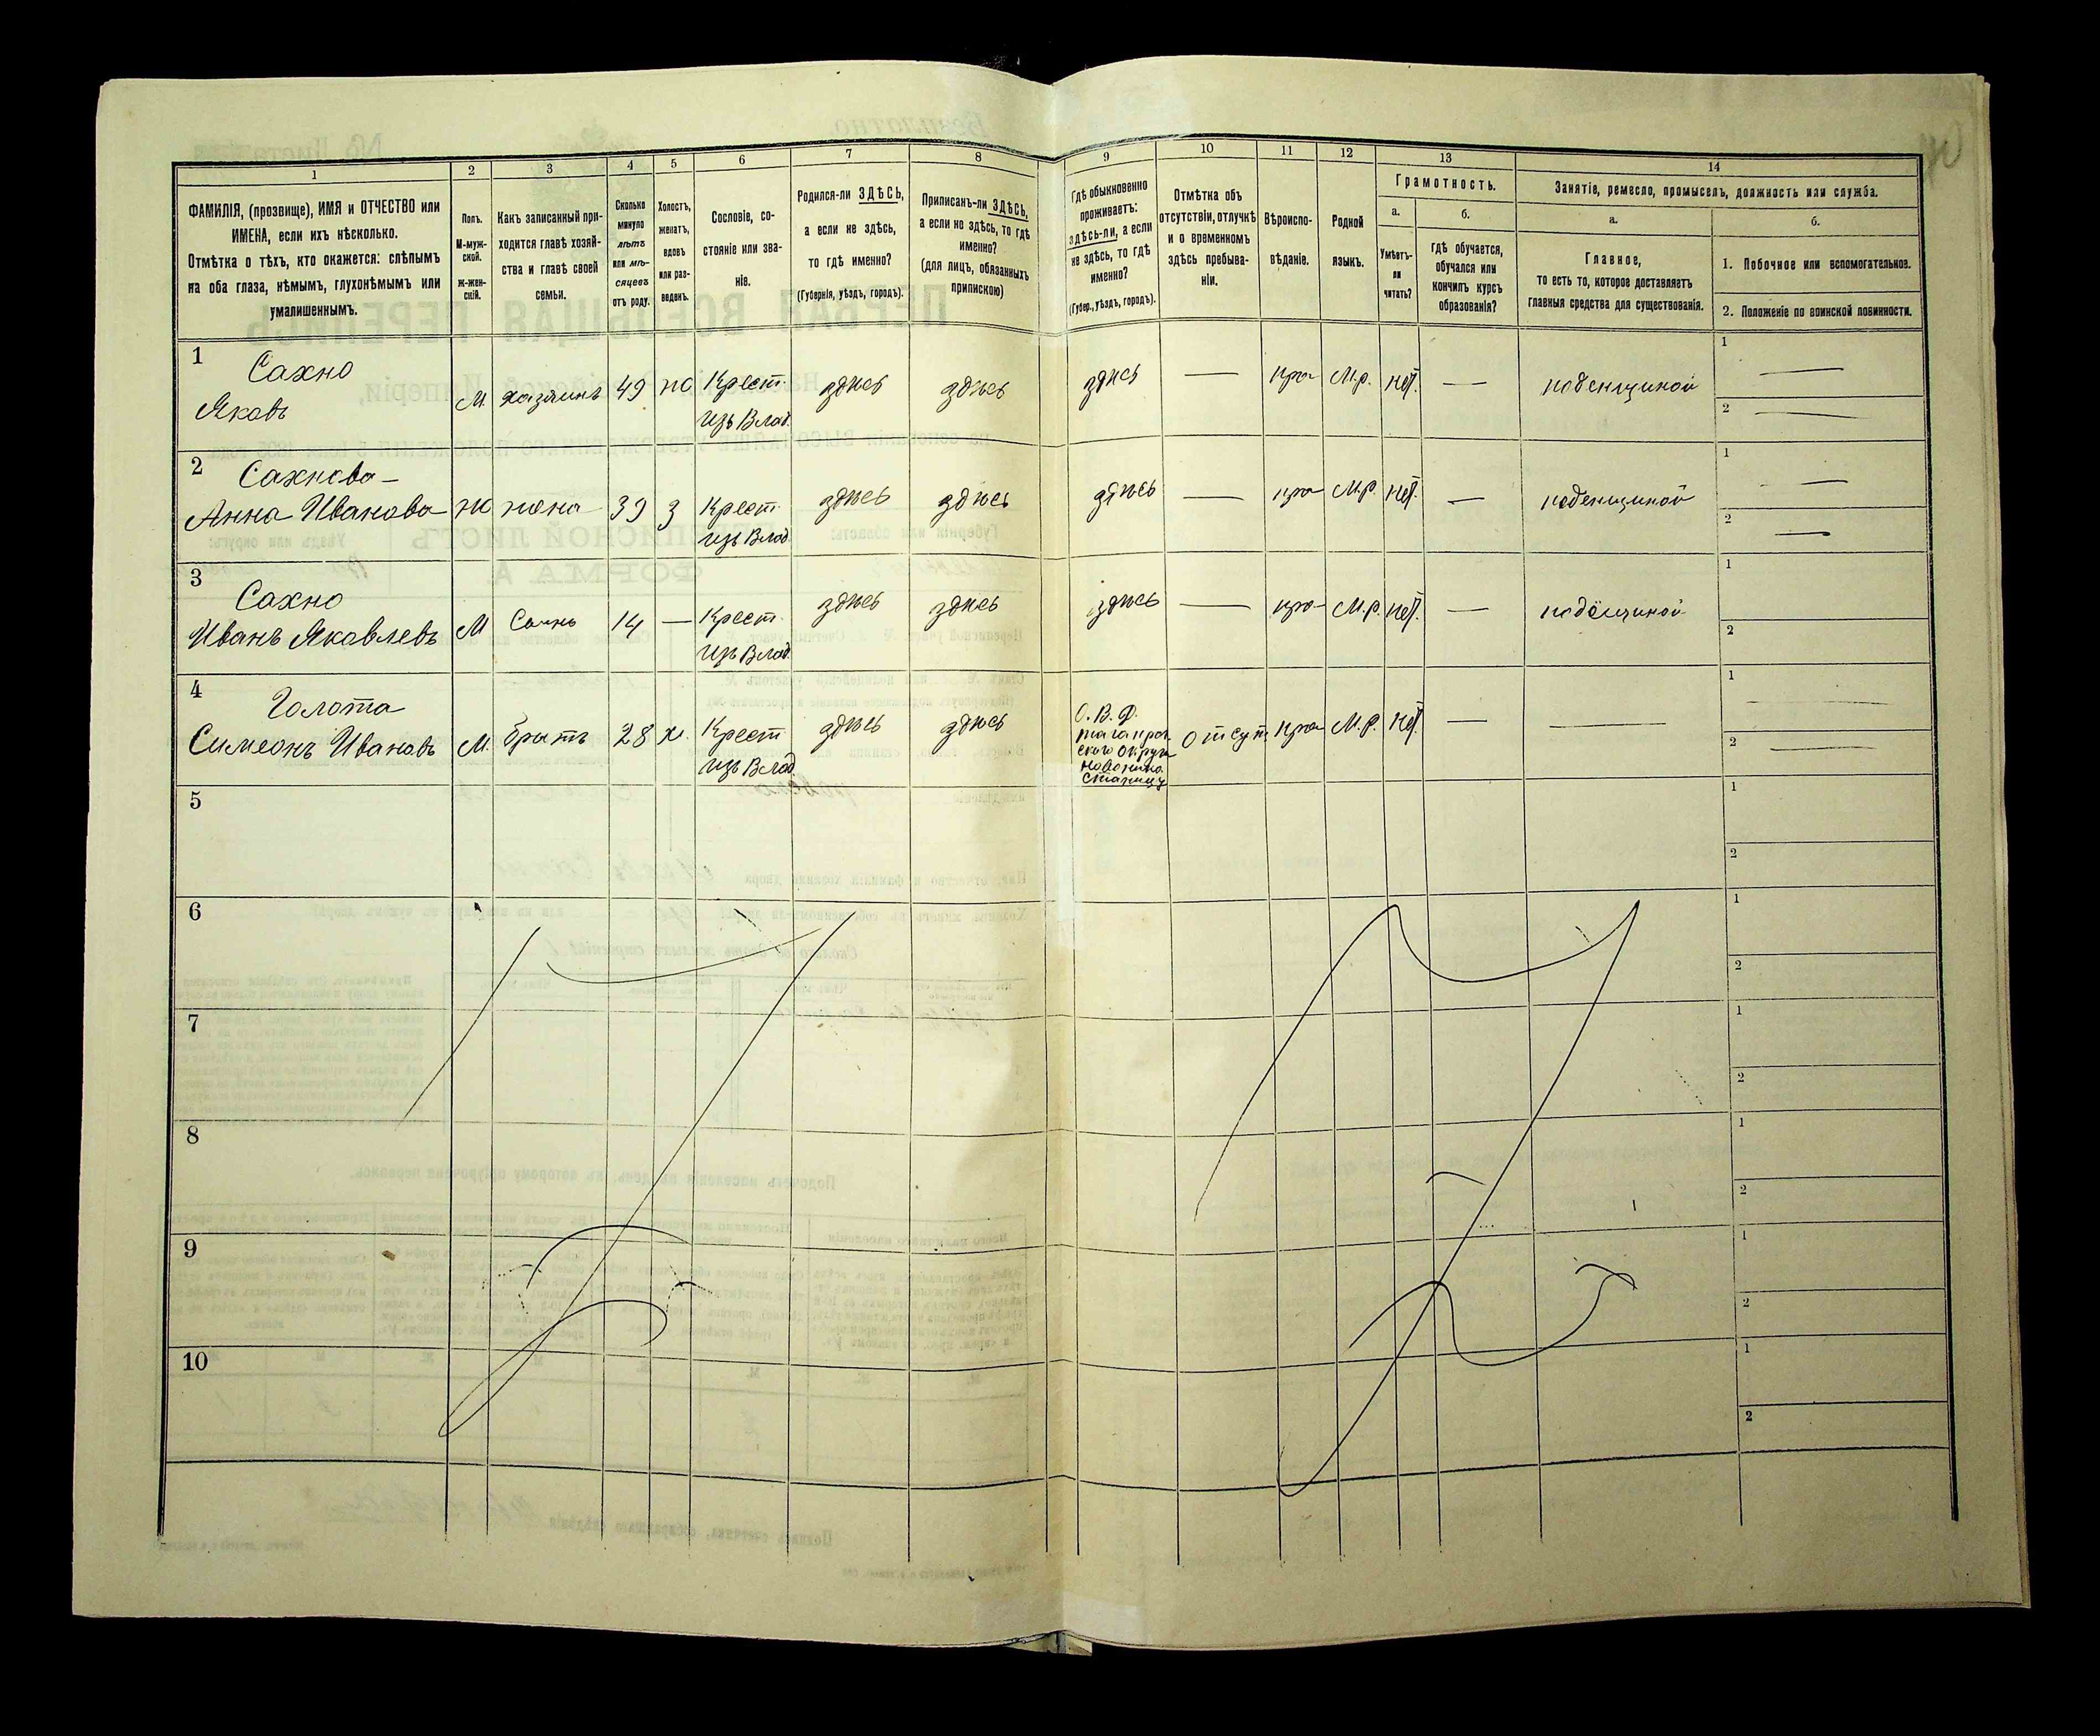 1 2 3 4 5 6 7 8 9 10 11 12 13 14
ФАМИЛІЯ, (прозвище), ИМЯ и ОТЧЕСТВО или
ИМЕНА, если ихъ нѣсколько.
Отмѣтка о тѣхъ, кто окажется: слѣпымъ
на оба глаза, нѣмымъ, глухонѣмымъ или
умалишеннымъ.
Полъ.
М-муж-
ской.
Ж-жен-
скій.
Какъ записанный при-
ходится главѣ хозяй-
ства и главѣ своей
семьи.
Сколько
минуло
лѣтъ
или мѣ-
сяцевъ
отъ роду.
Холостъ,
женатъ,
вдовъ
или раз-
веденъ.
Сословіе, со-
стояніе или зва-
ніе.
Родился-ли ЗДѢСЬ,
а если не здѣсь,
то гдѣ именно?
(Губернія, уѣздъ, городъ).
Приписанъ-ли ЗДѢСЬ,
а если не здѣсь, то гдѣ
именно?
(для лицъ, обязанныхъ
припискою)
Гдѣ обыкновенно
проживаетъ:
здѣсь-ли, а если
не здѣсь, то гдѣ
именно?
(Губер., уѣздъ, городъ).
Отмѣтка объ
отсутствіи, отлучкѣ
и о временномъ
здѣсь пребыва-
ніи.
Вѣроиспо-
вѣданіе.
Родной
языкъ.
Грамотность.
а.
Умѣетъ-
ли
читать?
б.
гдѣ обучается,
обучался или
кончилъ курсъ
образованія?
Занятіе, ремесло, промыселъ, должность или служба.
а.
Главное,
то есть то, которое доставляетъ
главныя средства для существованія.
б.
1. Побочное или вспомогательное.
2. Положеніе по воинской повинности.
1 Сахно
Яковъ
М. хазяинъ 49 ж Крест.
изъ Влад.
здѣсь здѣсь здѣсь — пра- М.р. нѣт. — поденщиной
1 —
2 —
2 Сахнова
Анна Иванова
ж жена 39 з Крест.
изъ Влад.
здѣсь здѣсь здѣсь — пра- М.р. нѣт. — поденщиной
1 —
2 —
3 Сахно
Иванъ Яковлевъ
М Сынъ 14 — Крест.
изъ Влад.
здѣсь здѣсь здѣсь — пра- М.р. нѣт. —
1
2
4 Голота
Симеонъ Ивановъ
М. братъ 28 х. Крест
изъ Влад.
здѣсь здѣсь
О. В. Д.
таганрог
ского округа
отсут. пра- М.р. нѣт. — —
1 —
2 —
5
1
2
6
1
2
7
1
2
8
1
2
9
1
2
10
1
2